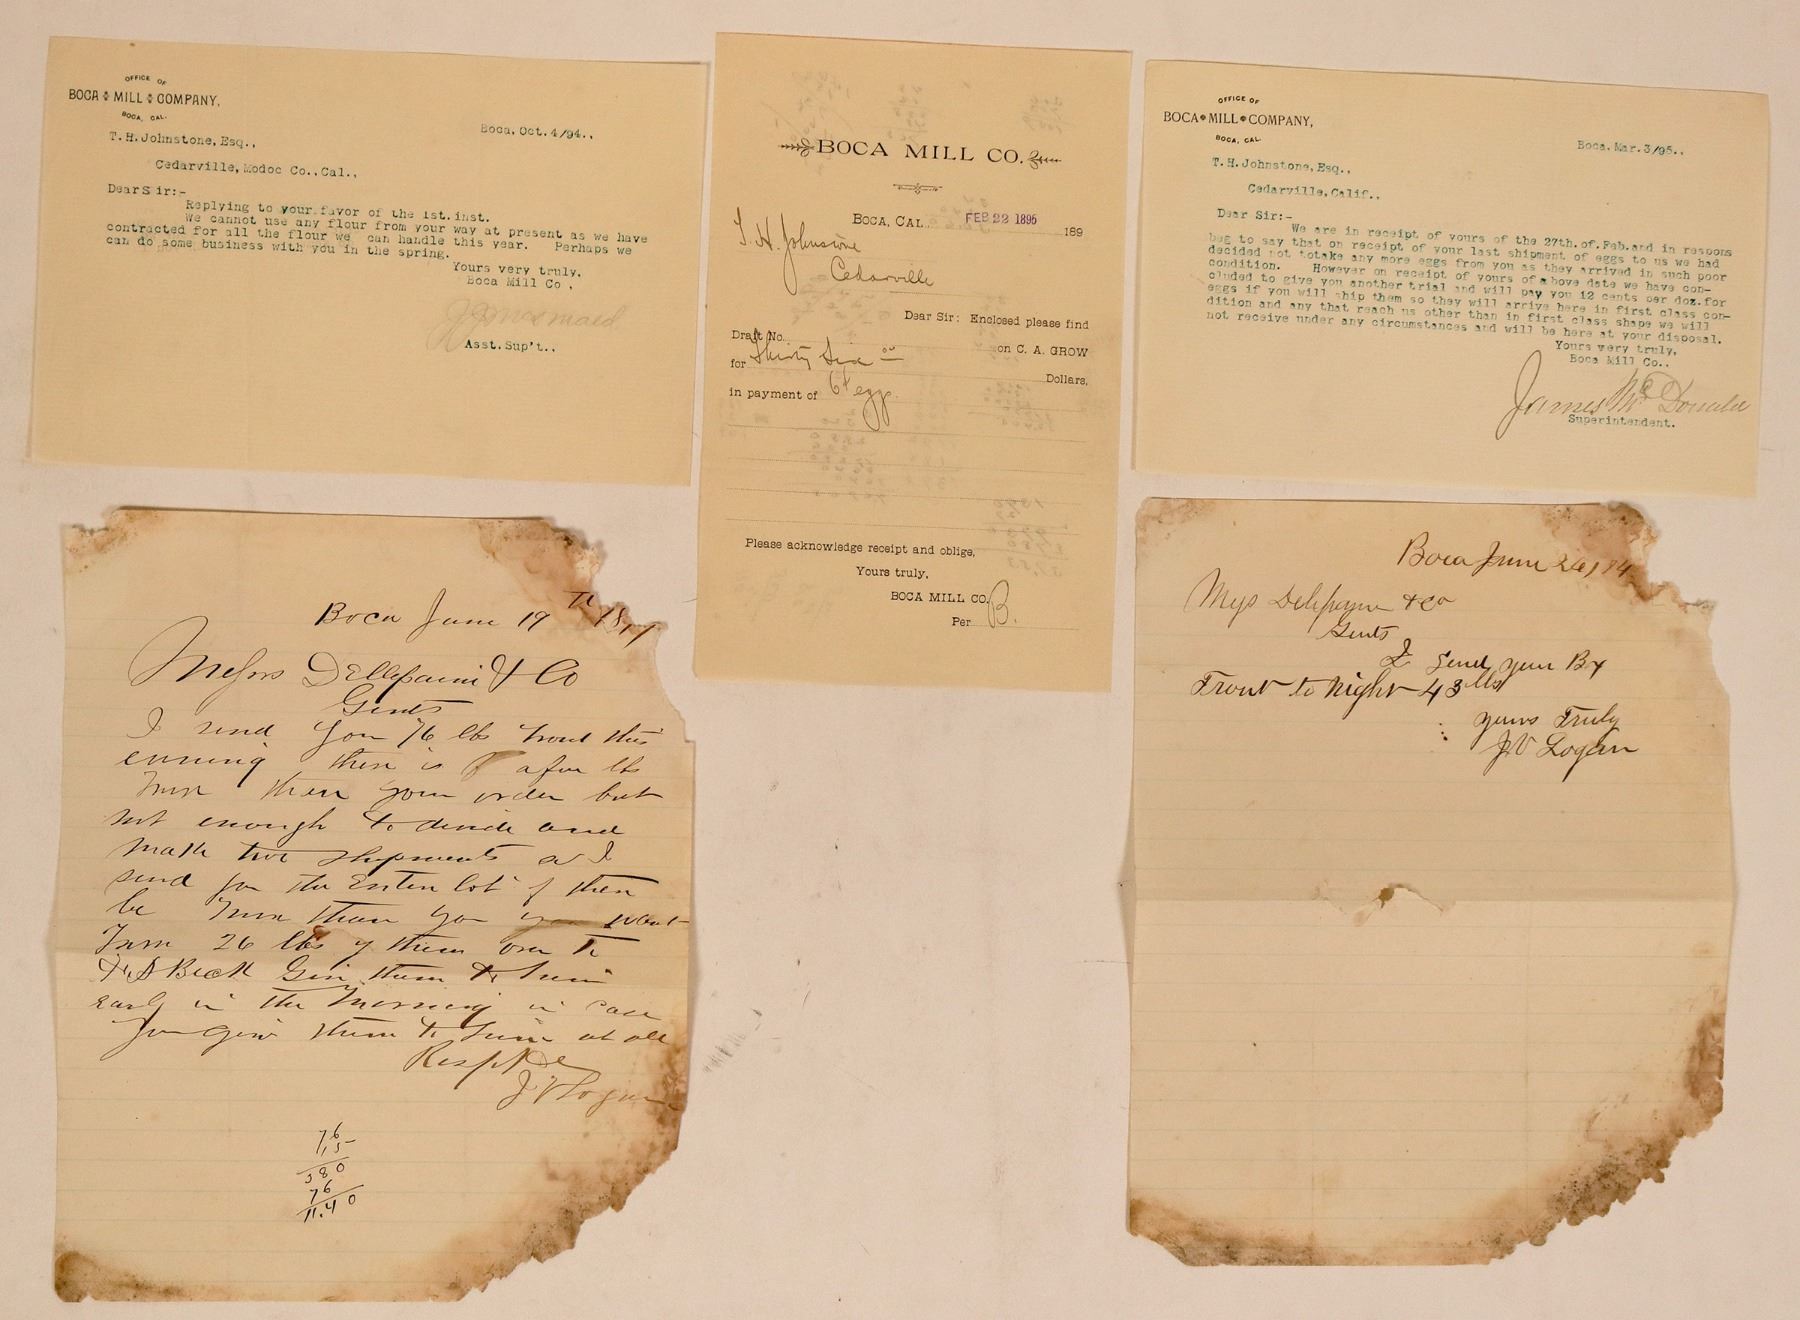 OFFICE OF
BOCA MILL COMPANY,
BOCA, CAL.
Boca, Oct. 4/94.,
T.H.Johnstone, Esq.,
Cedarville, Modoc Co., Cal.,
Dear S ir:-
Replying to your favor of the 1st. inst.
We cannot use any flour from your way at present as we have
contracted for all the flour we can handle this year. Perhaps we
can do some business with you in the spring.
Yours very truly,
Boca Mill Co.,
Asst. Sup't.,
BOCA MILL CO.
BOCA, CAL. FEB 22 1895 189
T. H. Johnstone
Cedarville
Dear Sir: Enclosed please find
Draft No. on C. A. GROW
for Thirty Six Dollars,
in payment of eggs.
Please acknowledge receipt and oblige,
Yours truly,
BOCA MILL CO.
Per B.
OFFICE OF
BOCA MILL COMPANY,
BOCA, CAL.
Boca, Mar. 3/95.,
T.H.Johnstone, Esq.,
Cedarville, Calif.,
Dear Sir:-
We are in receipt of yours of the 27th. of. Feb. and in respons
beg to say that on receipt of your last shipment of eggs to us we had
decided not totake any more eggs from you as they arrived in such poor
condition. However on receipt of yours of above date we have con-
cluded to give you another trial and will pay you 12 cents per doz. for
eggs if you will ship them so they will arrive here in first class con-
dition and any that reach us other than in first class shape we will
not receive under any circumstances and will be here at your disposal.
Yours very truly,
Boca Mill Co.,
James McDonald
Superintendent.
Boca June 19th
Messrs Dellepaini & Co
Gents
I send you 76 lbs trout this
evening there is a few lbs
more then your order but
not enough to divide and
make two shipments so I
send you the Enten lot if there
be more than you want
Turn 26 lbs of them over to
Beck Give them to him
Early in the morning in case
You give them to him at all
J V Logan
76
15
380
76
11.40
Boca June 26
Dellepaine & Co
Gents
I Send you Bx
Trout to night 43 lbs
yours Truly
J V Logan